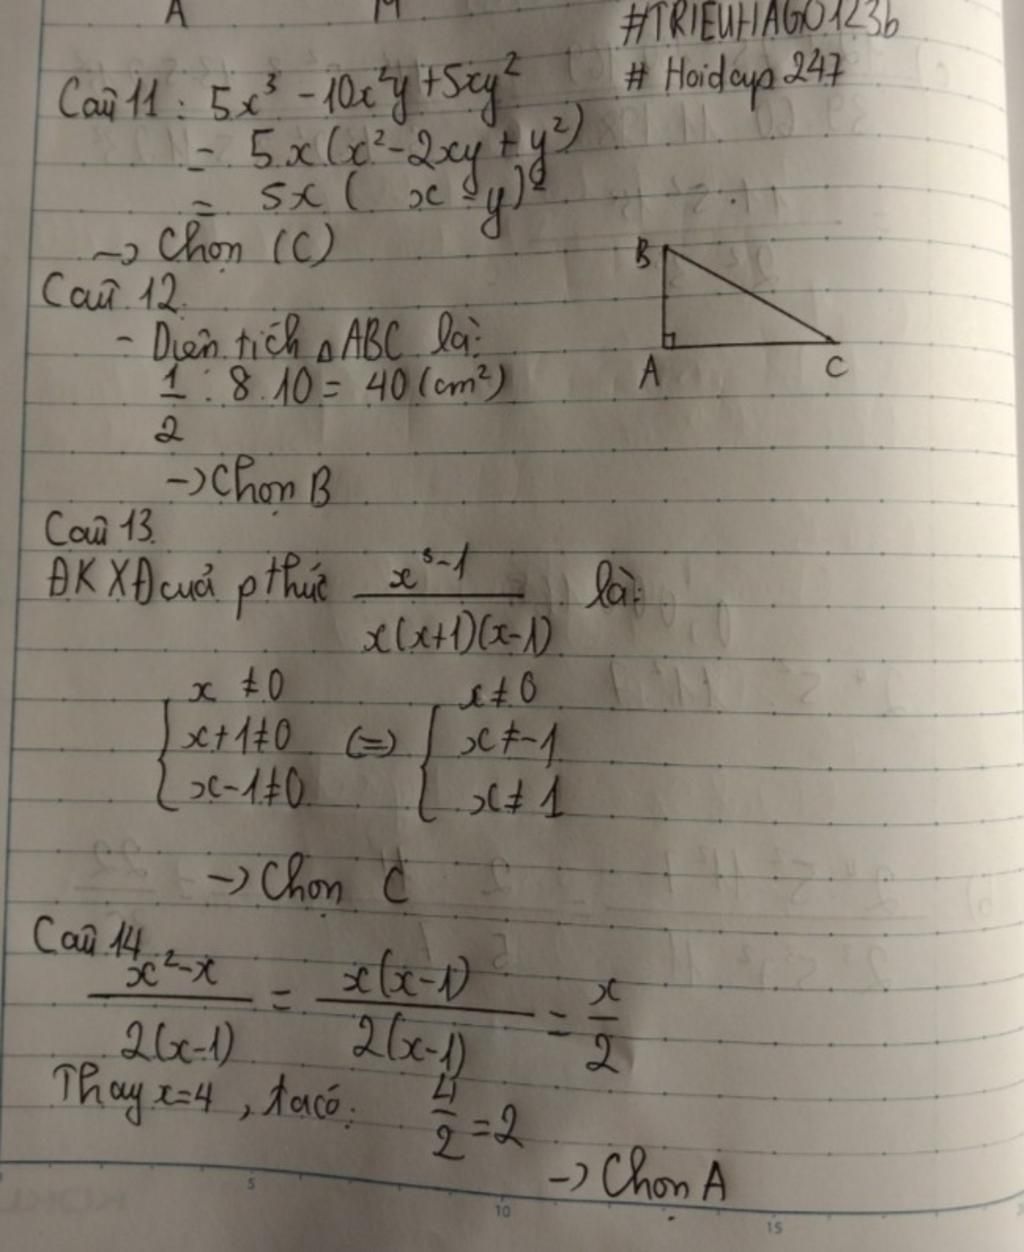 A M
#TRIEUHAGO1236
# Hoidap247
Câu 11: 5x³ - 10x²y + 5xy²
= 5.x(x² - 2xy + y²)
= 5x ( x - y)²
→ Chọn (C)
Câu 12.
- Diện tích △ABC là:
1/2 . 8.10 = 40 (cm²)
→ Chọn B
B
A C
Câu 13.
ĐKXĐ cuả pthức (x³-1)/(x(x+1)(x-1)) là:
{ x ≠ 0 { x ≠ 0
x+1 ≠ 0 (=) x ≠ -1
x-1 ≠ 0 x ≠ 1
→ Chọn C
Câu 14
(x²-x)/(2(x-1)) = (x(x-1))/(2(x-1)) = x/2
Thay x=4, ta có: 4/2 = 2
→ Chọn A
5 10 15